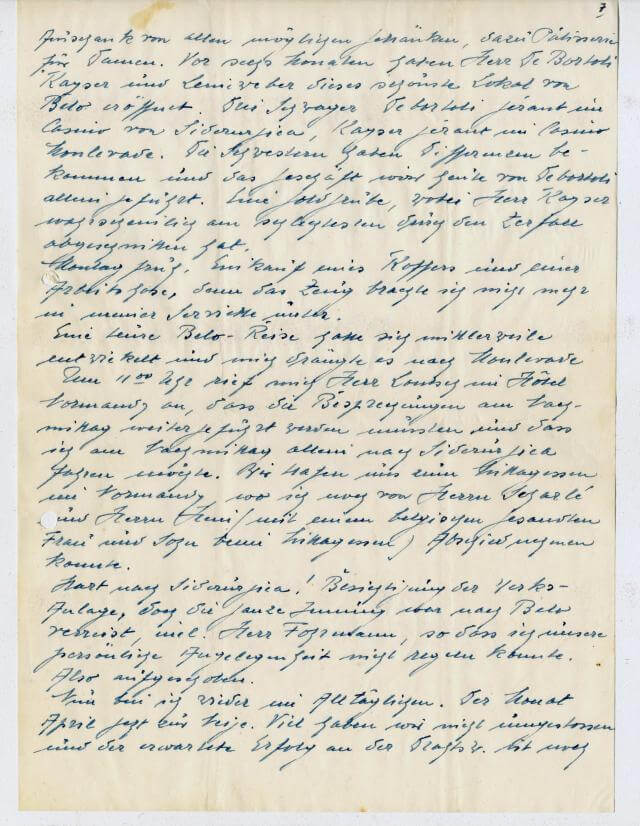 7
Ausschank von allen möglichen Getränken, dazu Pâtisserie
für Damen. Vor sechs Monaten haben Herr De Bortoli
Kayser und Leineweber dieses schönste Lokal von
Belo eröffnet. Drei Schwager. Debortoli gérant im
Casino von Siderurgica, Kayser gérant im Casino
Monlevade. Die Schwestern haben Differenzen be-
kommen und das Geschäft wird heute von Debortoli
allein geführt. Eine Goldgrube, wobei Herr Kayser
wahrscheinlich am schlechtesten durch den Zerfall
abgeschnitten hat.
Montag früh, Einkauf eines Koffers und einer
Arbeitshose, denn das Zeug brachte ich nicht mehr
in meiner Serviette unter.
Eine teure Belo-Reise hatte sich mittlerweile
entwickelt und mich drängte es nach Monlevade
Um 11 00 Uhr rief mich Herr Loutsch im Hôtel
Normandy an, dass die Besprechungen am Nach-
mittag weitergeführt werden müssten und dass
ich am Nachmittag allein nach Siderurgica
fahren möchte. Wir trafen uns zum Mittagessen
im Normandy, wo ich noch von Herrn Scharlé
und Herrn Hein (mit einem belgischen Gesandten
Frau und Sohn beim Mittagessen) Abschied nehmen
konnte.
nach Siderurgica! Besichtigung der Werks-
Anlage, doch die ganze Innung war nach Belo
verreist, incl. Herr Fohrmann, so dass ich unsere
persönliche Angelegenheit nicht regeln konnte.
Also aufgeschoben.
Nun bin ich wieder im Alltäglichen. Der Monat
April geht zur Neige. Viel haben wir nicht umgestossen
und der erwartete Erfolg an der ist noch